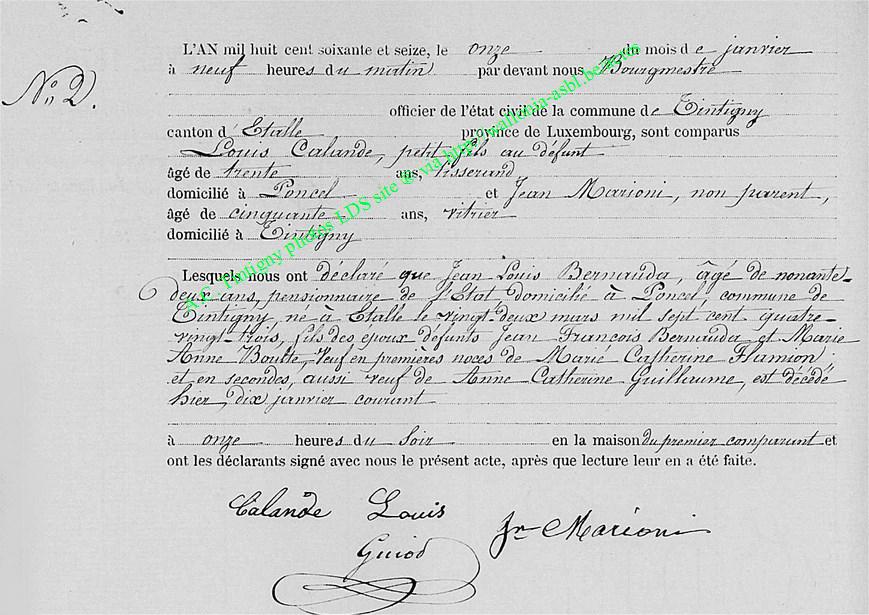 N° 2.
L'AN mil huit cent soixante et seize, le onze du mois de janvier
à neuf heures du matin par devant nous Bourgmestre
officier de l'état civil de la commune de Tintigny
canton d'Etalle province de Luxembourg, sont comparus
Louis Calande, petit fils au défunt
âgé de trente ans, tisserand
domicilié à Poncel et Jean Marioni, non parent,
âgé de cinquante ans, vitrier
domicilié à Tintigny
Lesquels nous ont déclaré que Jean Louis Bernauda, âgé de nonante-
deux ans, pensionnaire de l'Etat, domicilié à Poncel, commune de
Tintigny, né à Etalle le vingt deux mars mil sept cent quatre-
vingt-trois, fils des époux défunts Jean François Bernauda et Marie
Anne Boulte, Veuf en premières noces de Marie Catherine Flamion
et en secondes, aussi veuf de Anne Catherine Guillaume, est décédé
hier, dix janvier courant
à onze heures du soir en la maison du premier comparant et
ont les déclarants signé avec nous le présent acte, après que lecture leur en a été faite.
Calande Louis
Jn Marioni
Guiod
A.C. Tintigny photos LDS site ® via luxgenwallonia-asbl.be